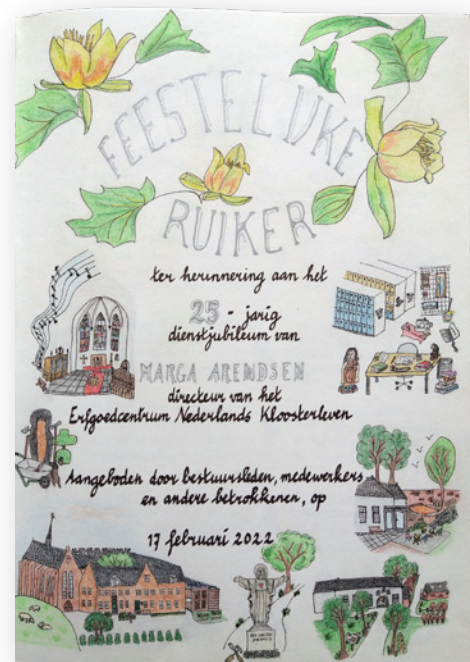 FEESTELIJKE
RUIKER
ter herinnering aan het
25 - jarig
dienstjubileum van
MARGA ARENDSEN
directeur van het
Erfgoedcentrum Nederlands Kloosterleven
Aangeboden door bestuursleden, medewerkers
en andere betrokkenen, op
17 februari 2022